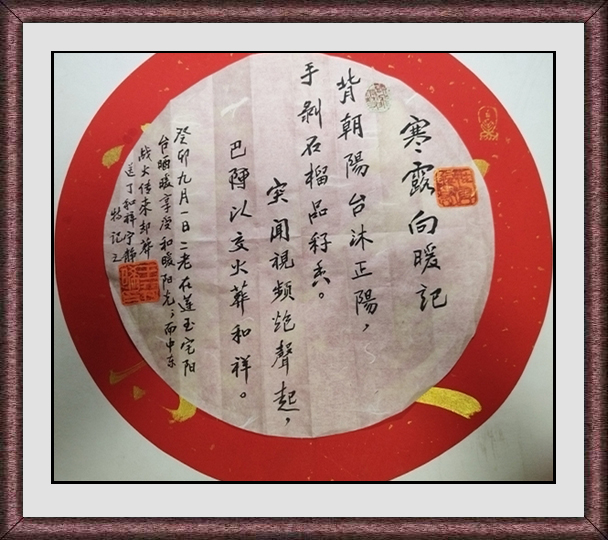 寒露向暖記
背朝陽台沐正陽，
手剥石榴品籽香。
突聞視頻炮聲起，
巴陣以交火葬和祥。
癸卯九月一日二老在莲玉宅阳
台晒暖享受和暖阳光；而中东
战火传来却葬
送了和祥宁静
特记之